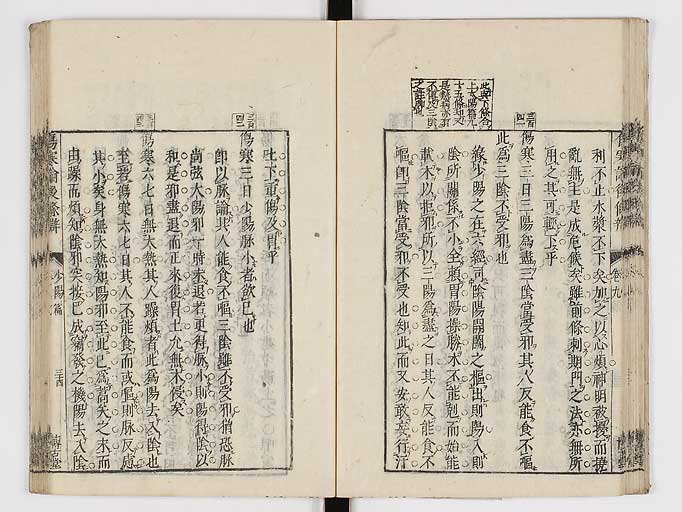 利不止水漿不下矣加之以心煩神明被擾而擾
亂無主是成危候矣雖前條刺期門之法亦無所
用之其可輕下乎
傷寒三日三陽為盡三陰當受邪其人反能食不嘔
此為三陰不受邪也
緣少陽之在六經司陰陽開闔之樞出則陽入則
陰所關係不小全賴胃陽操勝木不能剋而始能
獻木以拒邪所以三陽為盡之日其人反能食不
嘔即三陰當受邪不受也知此而又安敢妄行汗
吐下重傷及胃乎
傷寒三日少陽脉小者欲已也
即以脉論其人能食不嘔三陰雖不受邪猶恐脉
尚弦大陽邪一時未退若更得脉小則陽得陰以
和是邪盡退而正來復胃土允無木侵矣
傷寒六七日無大熱其人躁煩者此為陽去入陰也
至若傷寒六七日其人不能食而或嘔則脉反
其小矣身無大熱知陽邪至此已為
由躁而煩知陰邪突接已成發之機陽去入陰
傷寒論後條辨
少陽篇
卷九